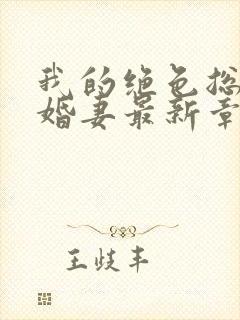 我的绝色总
婚妻最新章
王歧丰